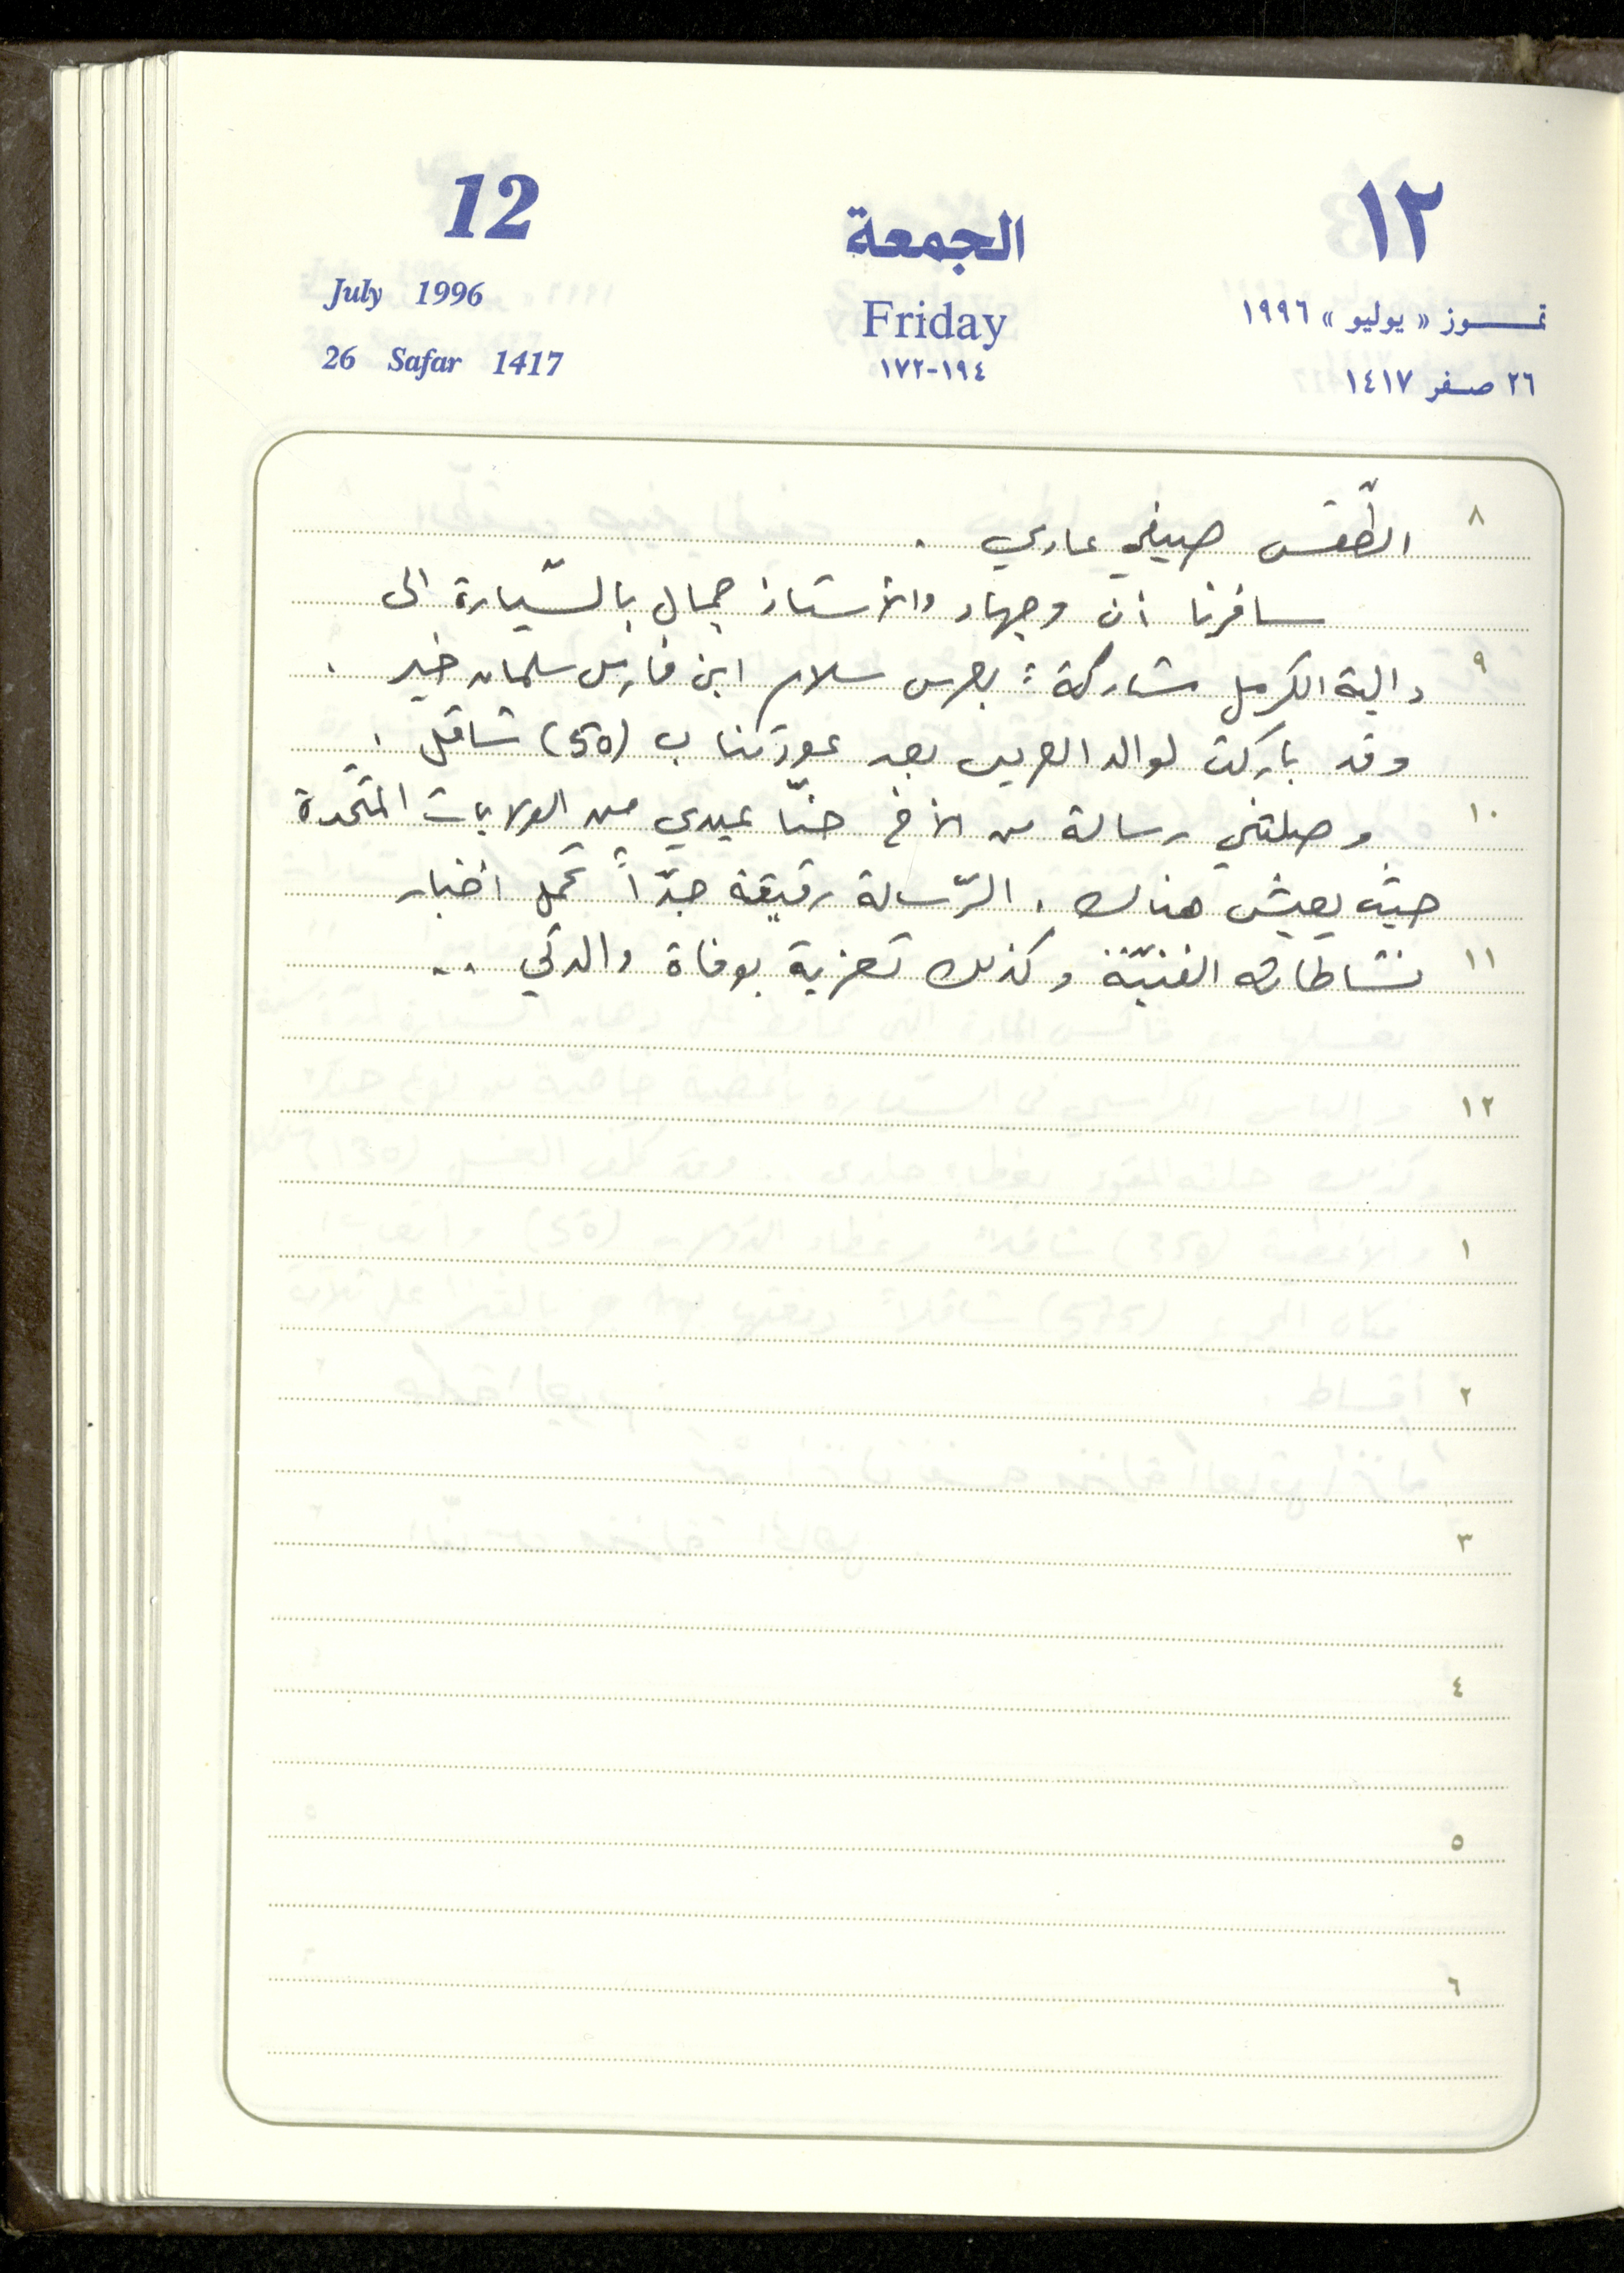 12 الجمعة ١٢
July 1996 Friday تمـــوز «يوليو» ١٩٩٦
26 Safar 1417 ١٩٤-١٧٢ ٢٦ صفر ١٤١٧
٨ الطّقس صيفي عادي .
سافرنا أنا وجهاد والأستاذ جمال بالسّيارة الى
٩ دالية الكرمل مشاركة : بعرس سلام ابن فارس سلمان خير .
وقد باركت لوالد العريس بعد عودتنا ب (50) شاقل .
١٠ وصلتني رسالة من الأخ حنّا عيدي من الولايات المتّحدة
حيث يعيش هناك . الرّسالة رقيقة جدّاً تحمل أخبار
١١ نشاطاته الفنيّة وكذلك تعزية بوفاة والدتي ..
١٢
١
٢
٣
٤
٥
٦